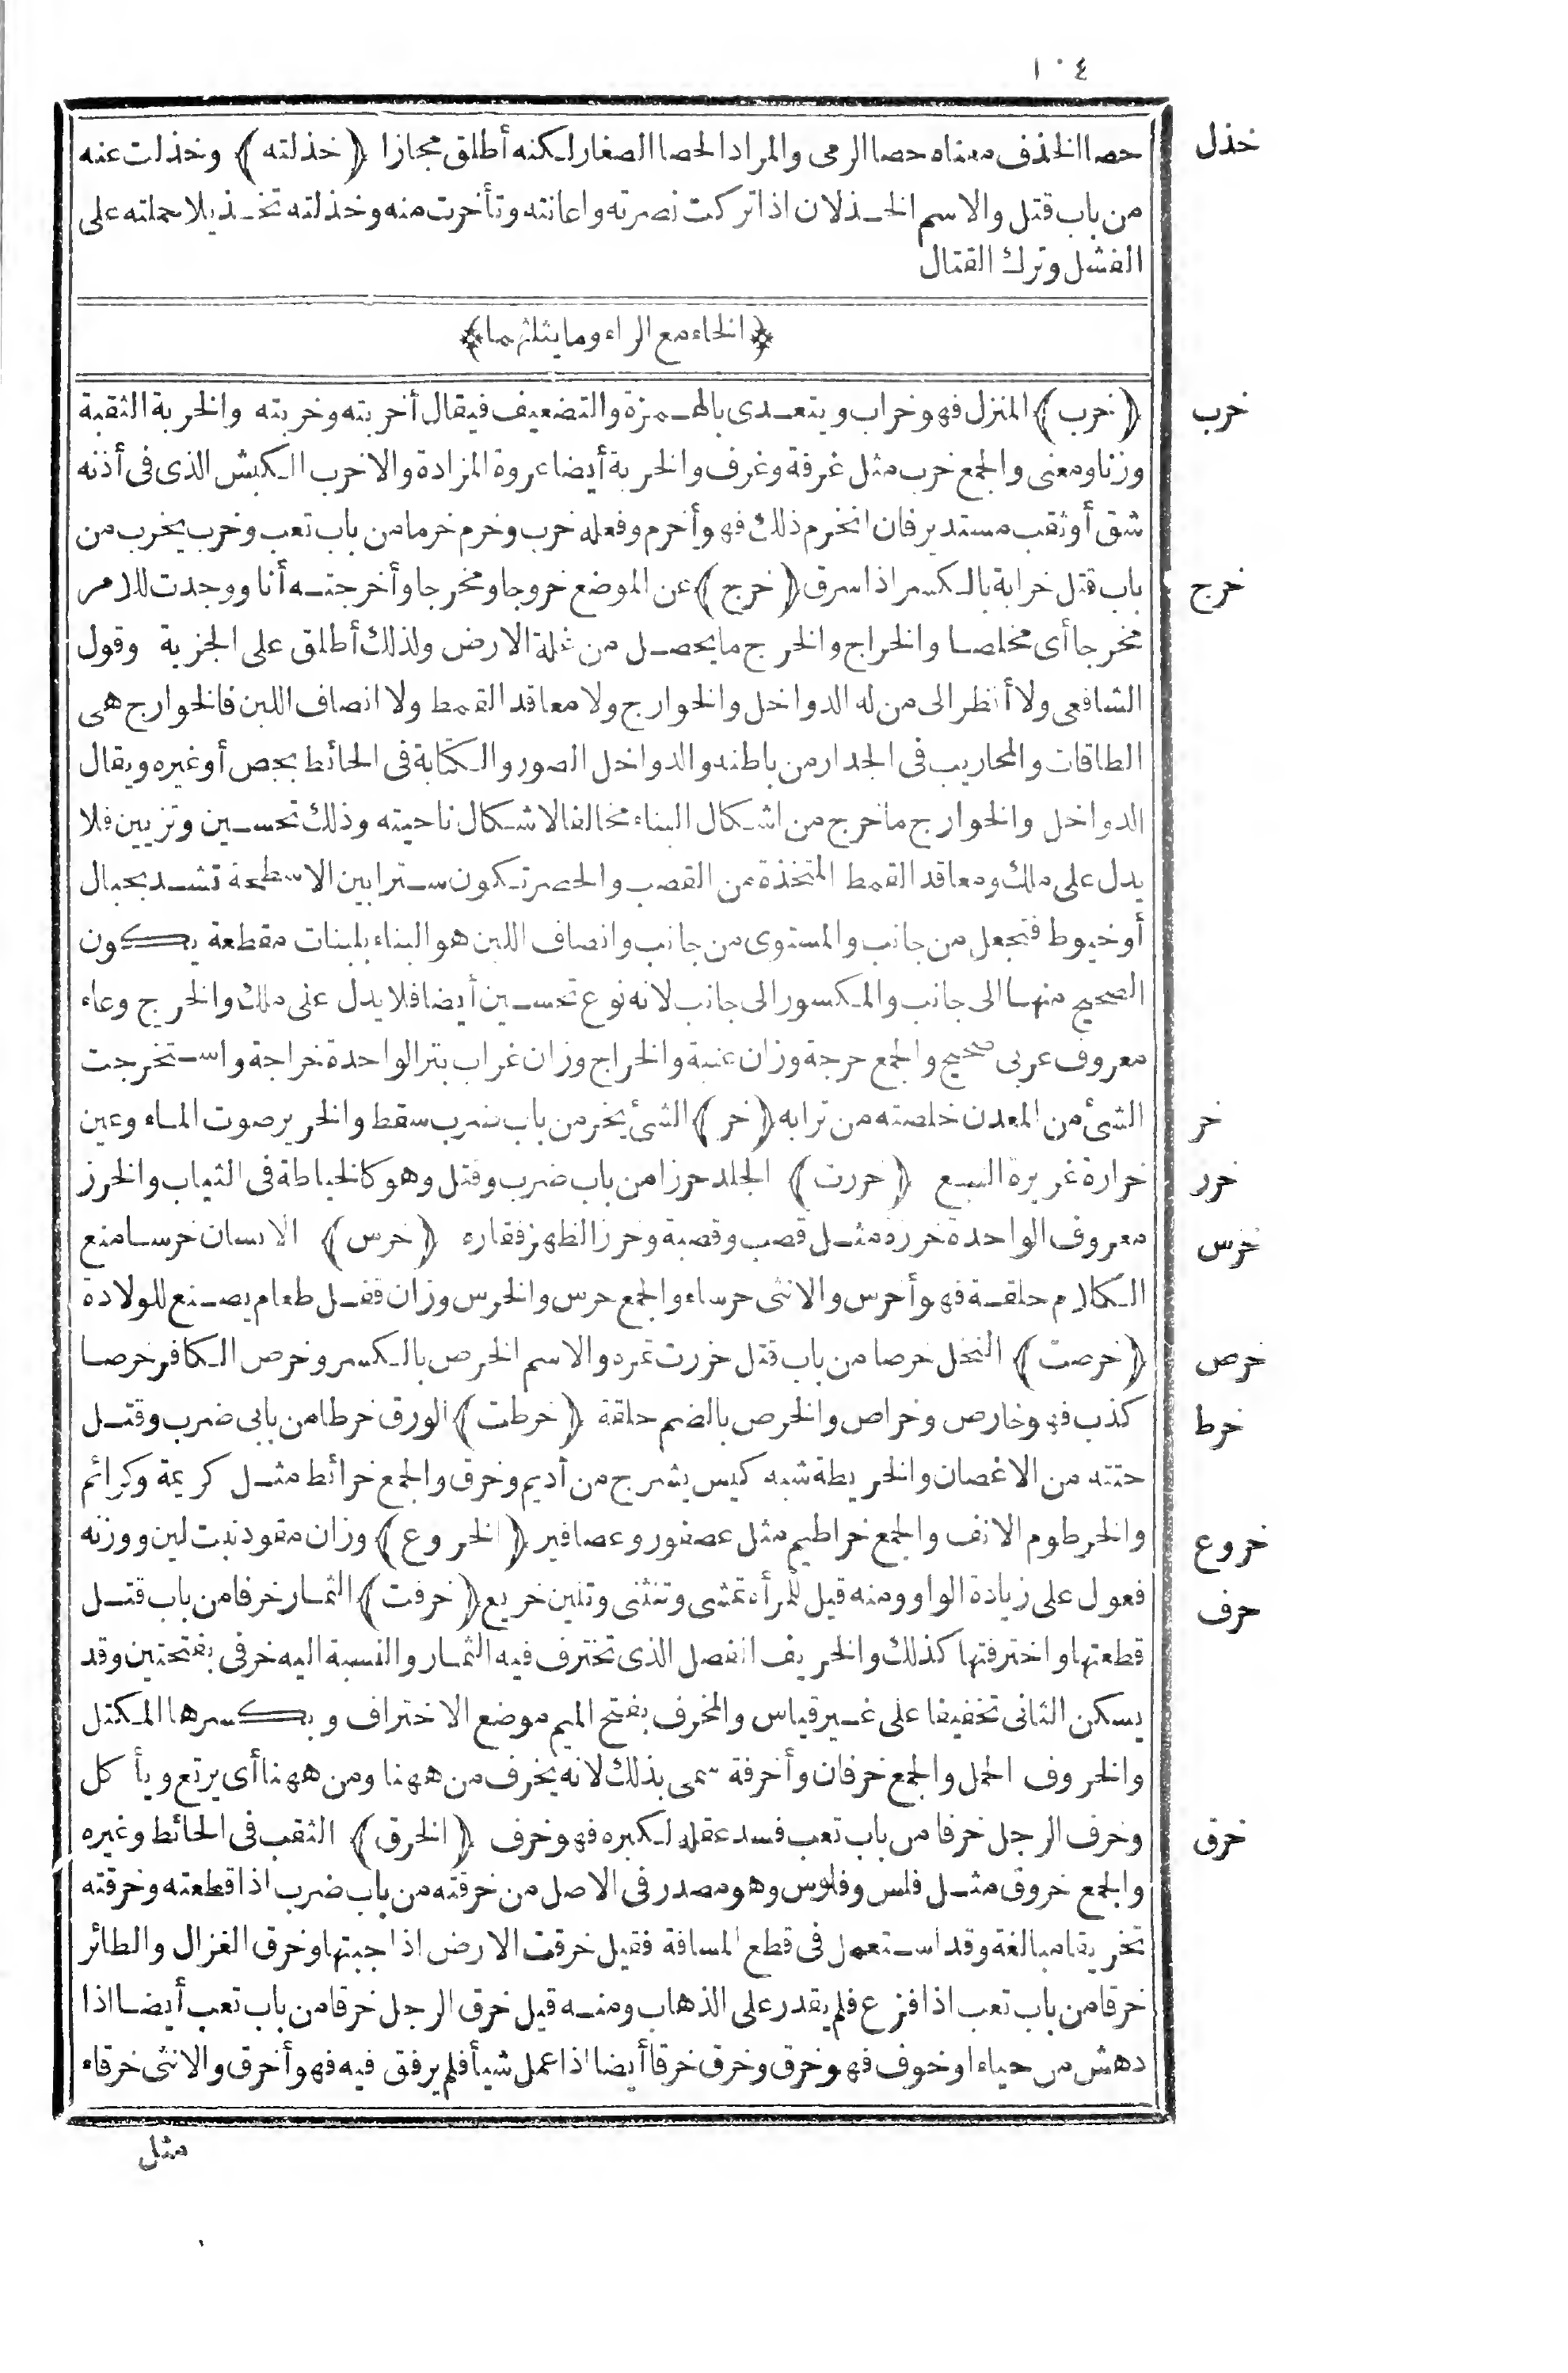 ١٠٤
خذل
حصا الخذف معناه حصا الرمى والمراد الحصا الصغار لكنه أطلق مجازا ﴿خذلته﴾ وخذلت عنه
من باب قتل والاسم الخذلان اذا تركت نصرته واعانته وتأخرت منه وخذلته تخذيلا حملته على
الفشل وترك القتال
﴿الخاء مع الراء وما يثلثهما﴾
خرب
﴿خرب﴾ المنزل فهو خراب ويتعدى بالهمزة والتضعيف فيقال أخربته وخربته والخربة الثقبة
وزنا ومعنى والجمع خرب مثل غرفة وغرف والخربة أيضا عروة المزادة والاخرب الكبش الذى فى أذنه
شق أو ثقب مستدير فان انخرم ذلك فهو أخرم وفعله خرب وخرم خرما من باب تعب وخرب يخرب من
خرج
باب قتل خرابة بالكسر اذا سرق ﴿خرج﴾ عن الموضع خروجا ومخرجا وأخرجته أنا ووجدت للامر
مخرجا أى مخلصا والخراج والخرج ما يحصل من غلة الارض ولذلك أطلق على الجزية وقول
الشافعى ولا أنظر الى من له الدواخل والخوارج ولا معاقد القمط ولا انصاف اللبن فالخوارج هى
الطاقات والمحاريب فى الجدار من باطنه والدواخل الصور والكتابة فى الحائط بجص أو غيره ويقال
الدواخل والخوارج ما خرج من اشكال البناء مخالفا لاشكال ناحيته وذلك تحسين وتزيين فلا
يدل على ملك ومعاقد القمط المتخذة من القصب والحصر تكون سترا بين الاسطحة تشد بحبال
أو خيوط فتجعل من جانب والمستوى من جانب وانصاف اللبن هو البناء بلبنات مقطعة يكون
الصحيح منها الى جانب والمكسور الى جانب لانه نوع تحسين أيضا فلا يدل على ملك والخرج وعاء
معروف عربى صحيح والجمع خرجة وزان عنبة والخراج وزان غراب بثر الواحدة خراجة واستخرجت
خر
الشئ من المعدن خلصته من ترابه ﴿خر﴾ الشئ يخر من باب ضرب سقط والخرير صوت الماء وعين
خرز
خرارة غزيرة النبع ﴿خرزت﴾ الجلد خرزا من باب ضرب وقتل وهو كالخياطة فى الثياب والخرز
خرس
معروف الواحدة خرزة مثل قصب وقصبة وخرز الظهر فقاره ﴿خرس﴾ الانسان خرسا منع
الكلام خلقة فهو أخرس والانثى خرساء والجمع خرس والخرس وزان قفل طعام يصنع للولادة
خرص
﴿خرصت﴾ النخل خرصا من باب قتل حزرت ثمره والاسم الخرص بالكسر وخرص الكافر خرصا
خرط
كذب فهو خارص وخراص والخرص بالضم حلقة ﴿خرطت﴾ الورق خرطا من بابى ضرب وقتل
حتته من الاغصان والخريطة شبه كيس يشرج من أديم وخرق والجمع خرائط مثل كريمة وكرائم
خروع
والخرطوم الانف والجمع خراطيم مثل عصفور وعصافير ﴿الخروع﴾ وزان مقود نبت لين ووزنه
خرف
فعول على زيادة الواو ومنه قيل للمرأة تمشى وتنثنى وتلين خريع ﴿خرفت﴾ الثمار خرفا من باب قتل
قطعتها واخترفتها كذلك والخريف الفصل الذى تخترف فيه الثمار والنسبة اليه خرفى بفتحتين وقد
يسكن الثانى تخفيفا على غير قياس والمخرف بفتح الميم موضع الاختراف وبكسرها المكتل
والخروف الحمل والجمع خرفان وأخرفة سمى بذلك لانه يخرف من ههنا ومن ههنا أى يرتع ويأكل
خرق
وخرف الرجل خرفا من باب تعب فسد عقله لكبره فهو خرف ﴿الخرق﴾ الثقب فى الحائط وغيره
والجمع خروق مثل فلس وفلوس وهو مصدر فى الاصل من خرقته من باب ضرب اذا قطعته وخرقته
تخريقا مبالغة وقد استعمل فى قطع المسافة فقيل خرقت الارض اذا جبتها وخرق الغزال والطائر
خرقا من باب تعب اذا فزع فلم يقدر على الذهاب ومنه قيل خرق الرجل خرقا من باب تعب أيضا اذا
دهش من حياء او خوف فهو خرق وخرق خرقا أيضا اذا عمل شيأ فلم يرفق فيه فهو أخرق والانثى خرقاء
مثل